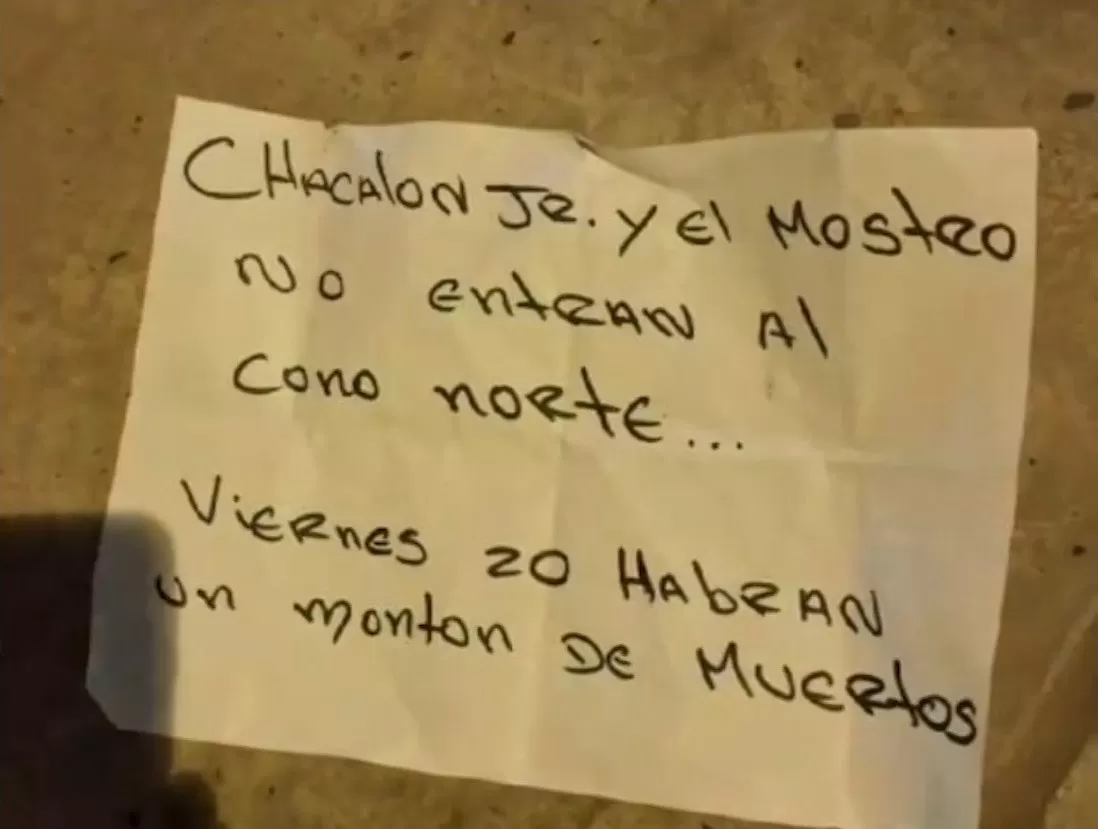 CHACALON JR. Y El MOSTRO
NO ENTRAN Al
CONO NORTE...
ViERNES 20 HAbRAN
un monton DE MUERtOS